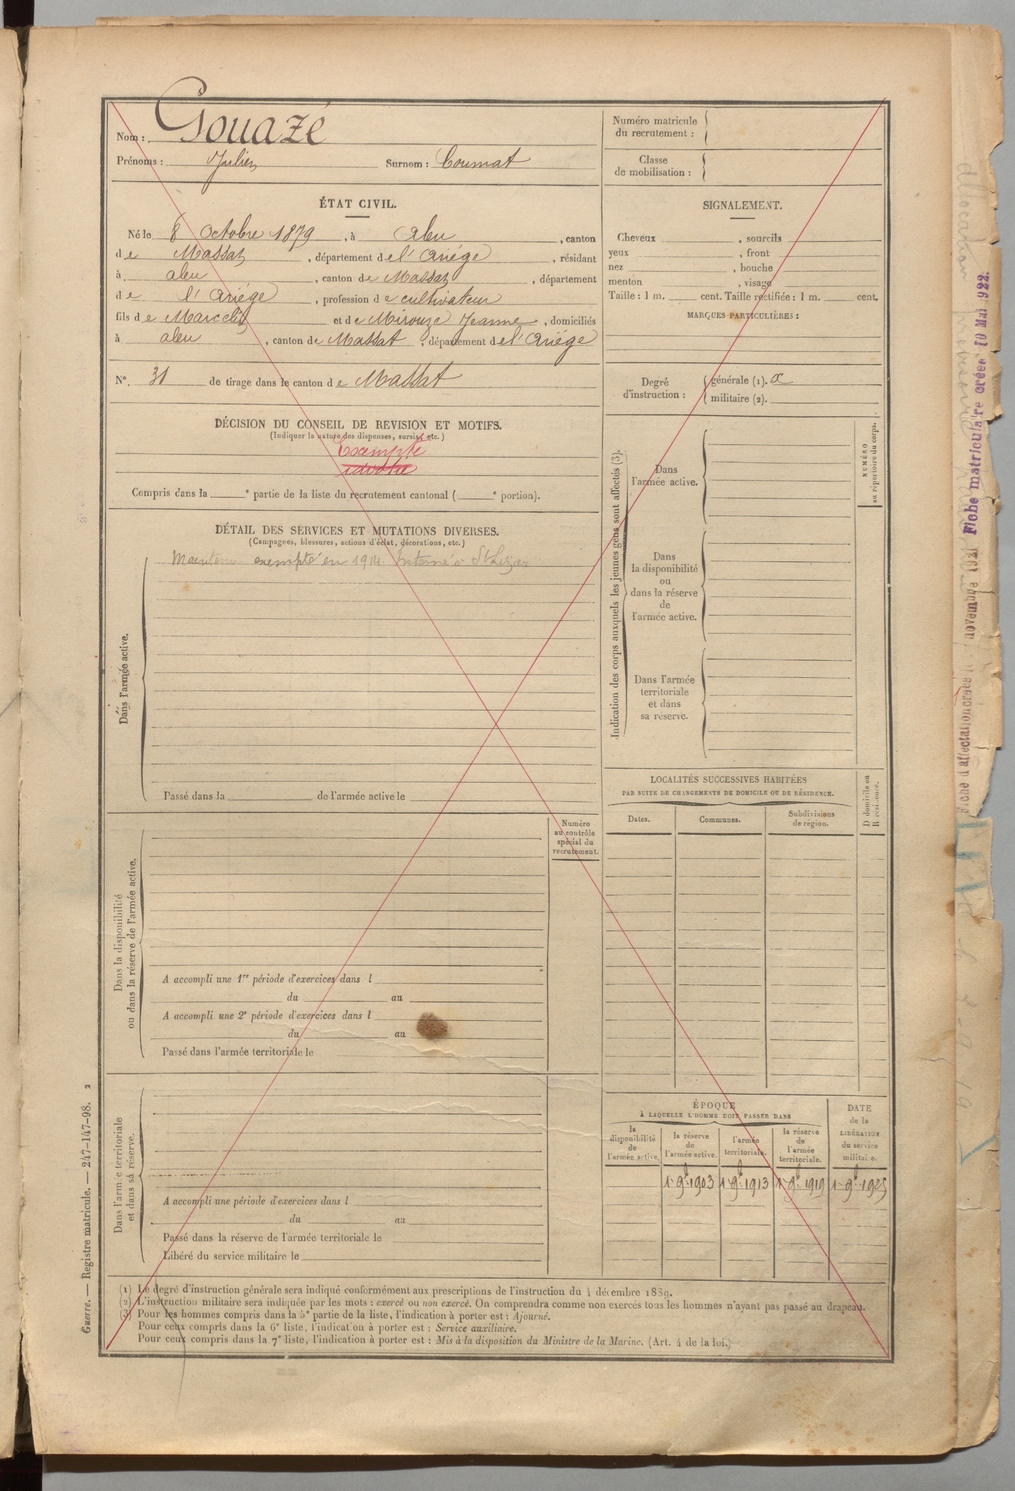 Nom : Gouazé
Prénoms : Julien Surnom : Coumat
Numéro matricule
du recrutement :
Classe
de mobilisation :
ÉTAT CIVIL.
Né le 8 Octobre 1879, à Aleu, canton
de Massat, département de l'Ariège, résidant
à aleu, canton de Massat, département
de l'Ariége, profession de cultivateur
fils de Marcelin et de Mirouze Jeanne, domiciliés
à aleu, canton de Massat, département de l'Ariége
N°. 31 de tirage dans le canton de Massat
SIGNALEMENT.
Cheveux , sourcils
yeux , front
nez , bouche
menton , visage
Taille : 1 m. cent. Taille rectifiée : 1 m. cent.
MARQUES PARTICULIÈRES :
Degré
d'instruction :
générale (1).
militaire (2).
DÉCISION DU CONSEIL DE REVISION ET MOTIFS.
(Indiquer la nature des dispenses, sursis, etc.)
Exempté
Compris dans la e partie de la liste du recrutement cantonal ( e portion).
DÉTAIL DES SERVICES ET MUTATIONS DIVERSES.
(Campagnes, blessures, actions d'éclat, décorations, etc.)
exempté en 1914. Interné à St Lizier
Dans l'armée active.
Passé dans la de l'armée active le
Indication des corps auxquels les jeunes gens sont affectés (3).
Dans
l'armée active.
Dans
la disponibilité
ou
dans la réserve
de
l'armée active.
Dans l'armée
territoriale
et dans
sa réserve.
NUMÉRO
au répertoire du corps.
LOCALITÉS SUCCESSIVES HABITÉES
PAR SUITE DE CHANGEMENTS DE DOMICILE OU DE RÉSIDENCE.
D domicile ou
R résidence.
Dates.
Communes.
Subdivisions
de région.
Numéro
au contrôle
spécial du
recrutement.
Dans la disponibilité
ou dans la réserve de l'armée active.
A accompli une 1re période d'exercices dans l
du au
A accompli une 2e période d'exercices dans l
du au
Passé dans l'armée territoriale le
Dans l'armée territoriale
et dans sa réserve.
A accompli une période d'exercices dans l
du au
Passé dans la réserve de l'armée territoriale le
Libéré du service militaire le
ÉPOQUE
À LAQUELLE L'HOMME DOIT PASSER DANS
la
disponibilité
de
l'armée active.
la réserve
de
l'armée active.
l'armée
territoriale.
la réserve
de
l'armée
territoriale.
DATE
de la
LIBÉRATION
du service
militaire.
1 9bre 1903
1 9bre 1913
1 9bre 1919
1 9bre 1925
(1) Le degré d'instruction générale sera indiqué conformément aux prescriptions de l'instruction du 4 décembre 1889.
(2) L'instruction militaire sera indiquée par les mots : exercé ou non exercé. On comprendra comme non exercés tous les hommes n'ayant pas passé au drapeau.
(3) Pour les hommes compris dans la 5e partie de la liste, l'indication à porter est : Ajourné.
Pour ceux compris dans la 6e liste, l'indication à porter est : Service auxiliaire.
Pour ceux compris dans la 7e liste, l'indication à porter est : Mis à la disposition du Ministre de la Marine. (Art. 4 de la loi.)
Guerre. — Registre matricule. — 247-147-98. 2
novembre 1921 Fiche matriculaire créée 10 Mai 1922.